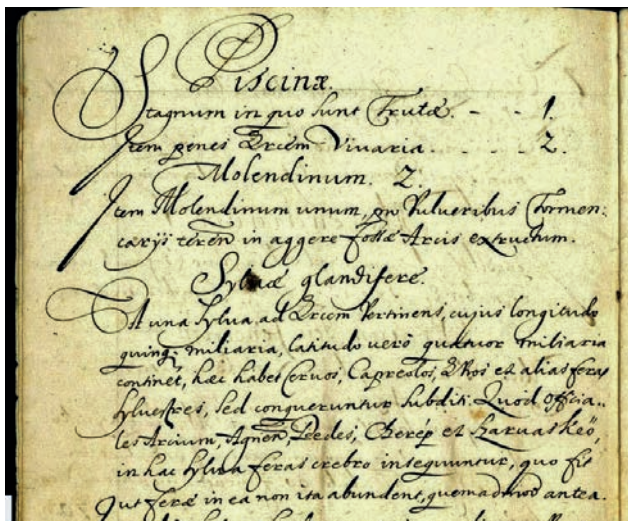 Piscinæ.
Stagnum in quo sunt Trutæ. - - - 1.
Item penes Arcem Vivaria - - - - 2.
Molendinum. 2.
Item Molendinum unum, pro Pulveribus Tormen:
tarijs teren in aggere fossæ Arcis extructum.
Sylvæ glandiferæ.
Est una Sylva, ad Arcem Pertinens, cujus longitudo
quinq; miliaria, latitudo verò quatuor miliaria
continet, hæc habet Cervos, Capreolos, Apros et alias feras
sylvestres, sed conqueruntur subditi: Quod officia:
les Arcium, Agnen, Dédes, Cserép et Szarvaskeö,
in hac Sylva feras crebro insequuntur, quo fit
ut feræ in ea non ita abundent, quemadmod antea.